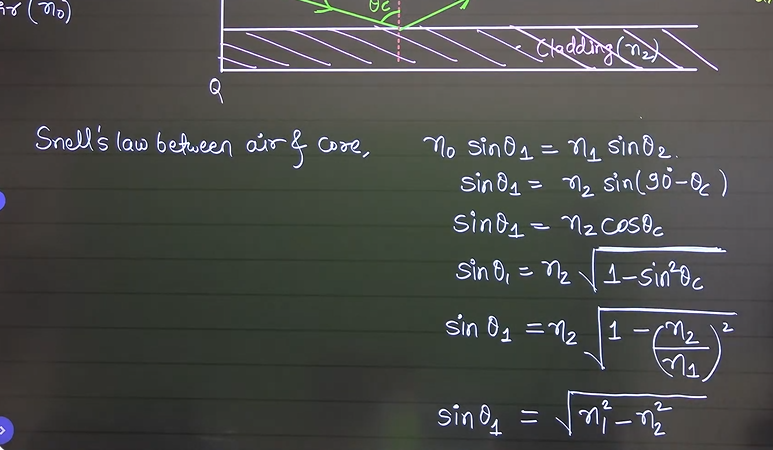 ir (n₀)
θc
Cladding (n₂)
Q
Snell's law between air & core, n₀ sinθ₁ = n₁ sinθ₂.
sinθ₁ = n₂ sin(90° – θc)
sinθ₁ = n₂ cosθc
sinθ₁ = n₂ √(1 – sin²θc)
sin θ₁ = n₂ √(1 – (n₂/n₁)²)
sinθ₁ = √(n₁² – n₂²)